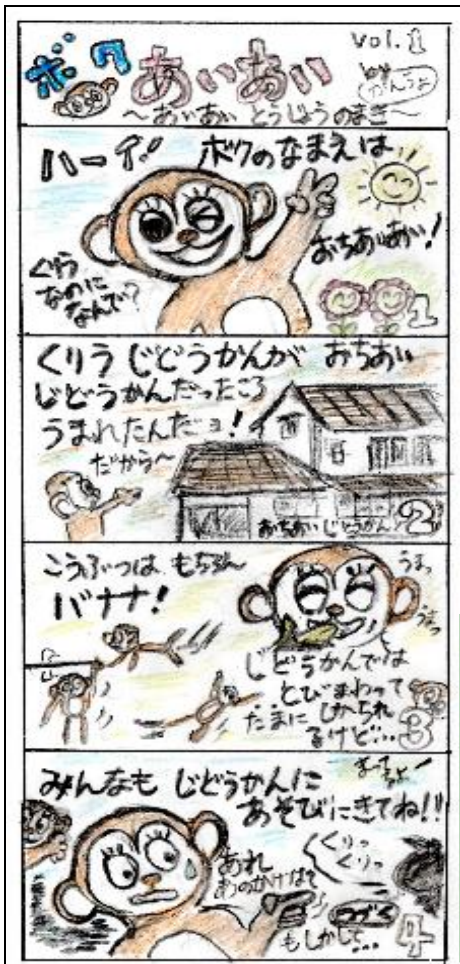 ボクあいあい
vol.1
by がんちょ
～おいあい とうじょうのまき～
ハーイ! ボクのなまえは
おちあいあい!
くりう
なのに
なんで?
1
くりう じどうかんが おちあい
じどうかんだったころ
うまれたんだョ!
だから～
おちあいじどうかん
2
こうぶつは、もちろん
バナナ!
うまっ
うまっ
じどうかんでは
とびまわって
たまに しかられ
るけど…
3
みんなも じどうかんに
あそびにきてね!!
まってるよー
くりっ
くりっ
あれ
あのかげはて
もしかして…
つづく
4